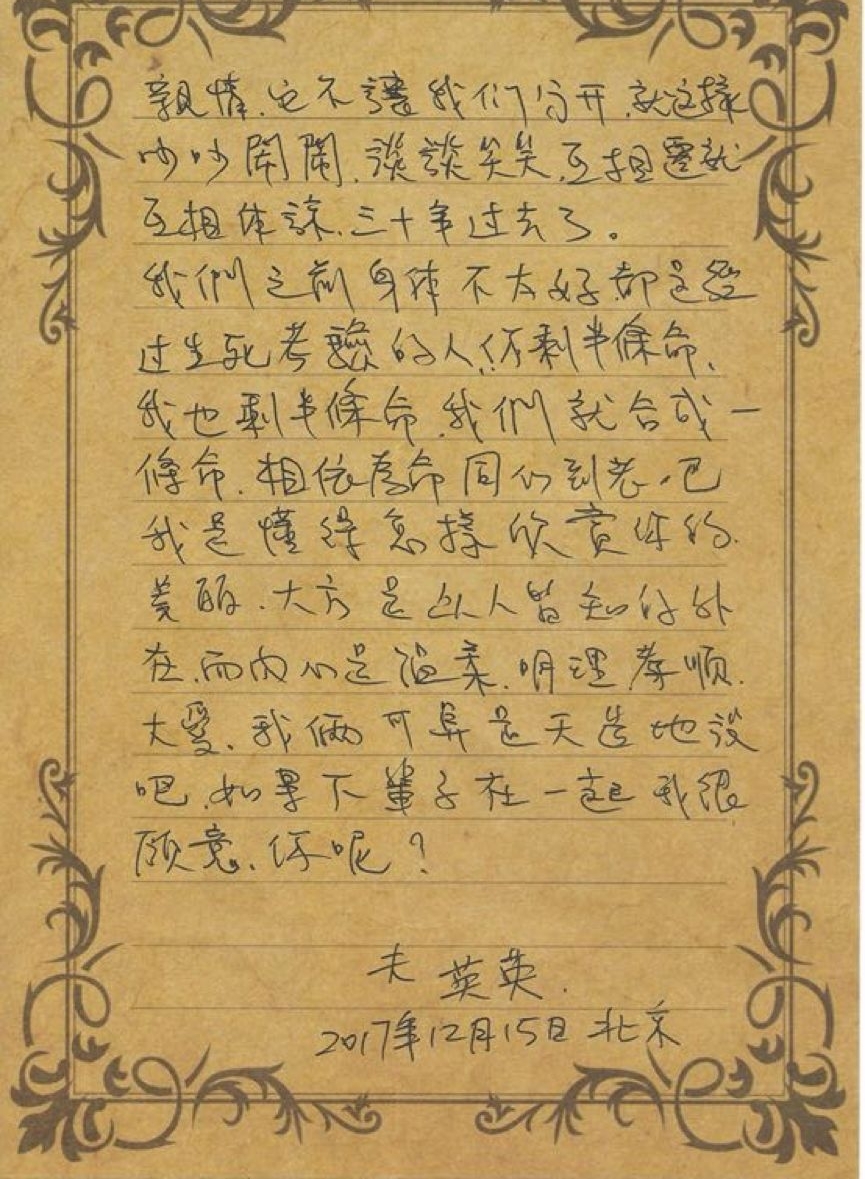 親情、它不讓我们分开,就这样
吵吵閙閙、談談笑笑,互相遷就
互相体諒、三十年过去了。
我們之前身体不太好都是經
过生死考驗的人,你剩半條命、
我也剩半條命,我們就合成一
條命、相依為命同们到老、吧
我是懂得怎樣欣賞你的、
美丽、大方是众人皆知的外
在、而内心是温柔、明理孝顺、
大愛、我俩可算是天造地設
吧,如果下輩子在一起我很
願意、你呢?
夫 英英.
2017年12月15日 北京